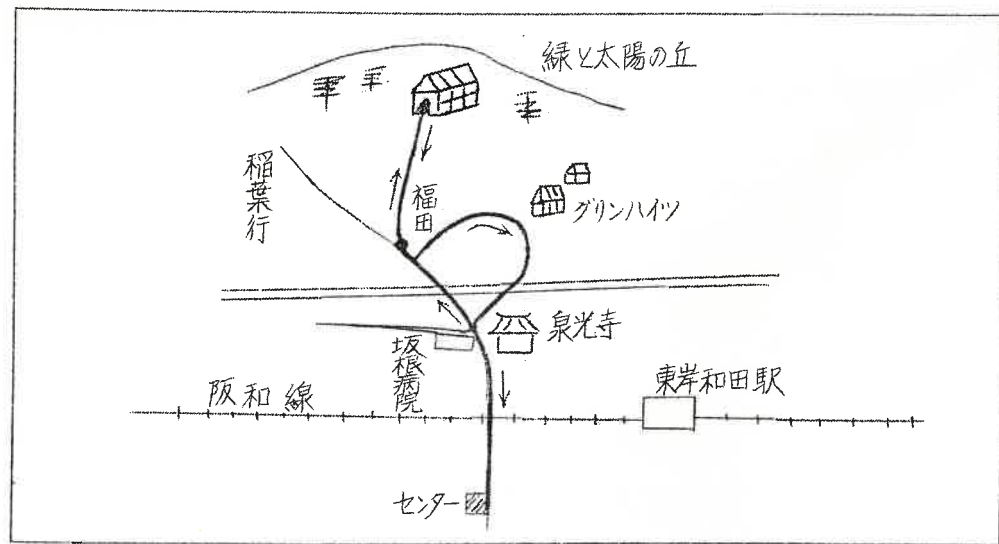 緑と太陽の丘
稲葉行
福田
グリンハイツ
泉光寺
坂根病院
阪和線
東岸和田駅
センター